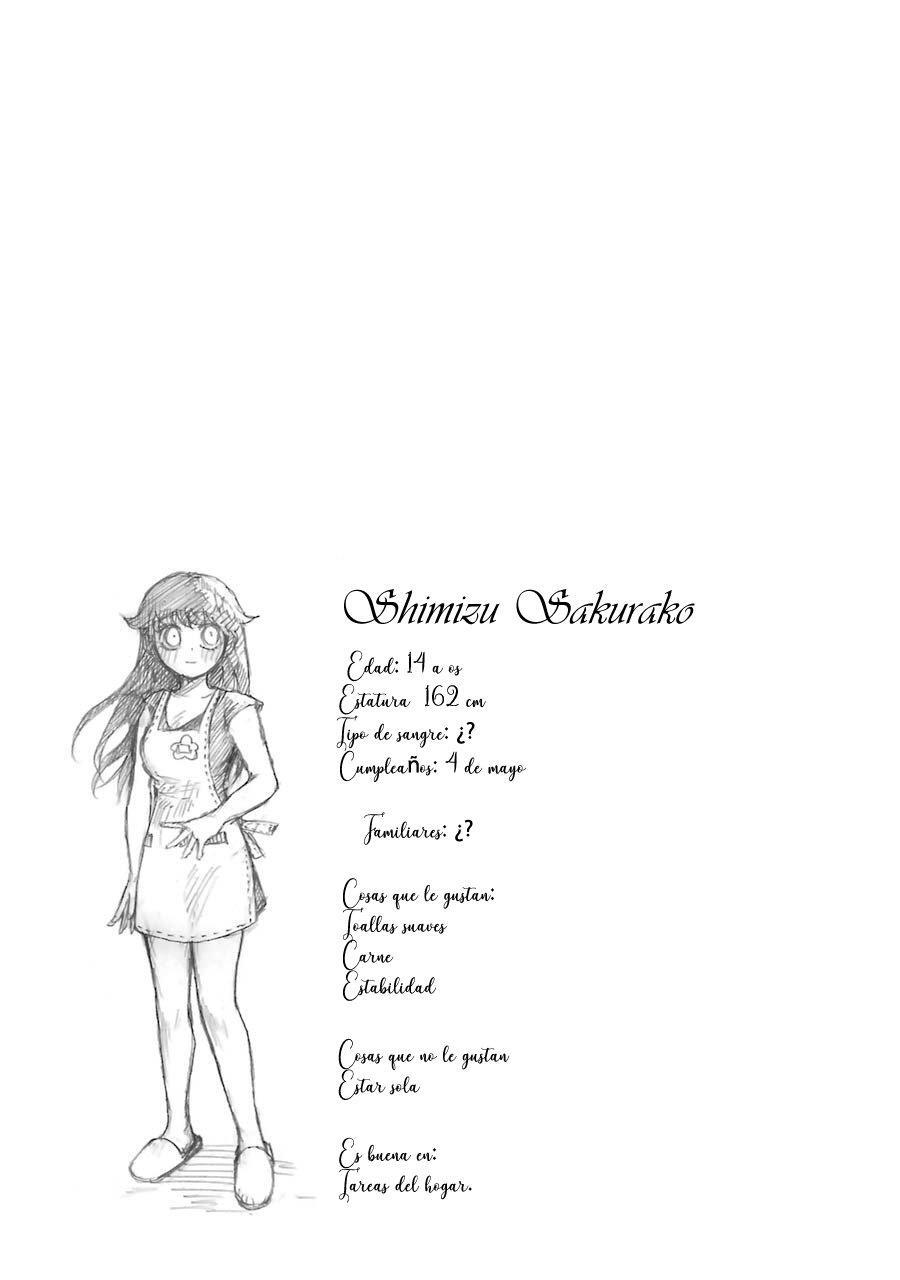 Shimizu Sakurako
Edad: 14 a os
Estatura 162 cm
Tipo de sangre: ¿?
Cumpleaños: 4 de mayo
Familiares: ¿?
Cosas que le gustan:
Toallas suaves
Carne
Estabilidad
Cosas que no le gustan
Estar sola
Es buena en:
Tareas del hogar.